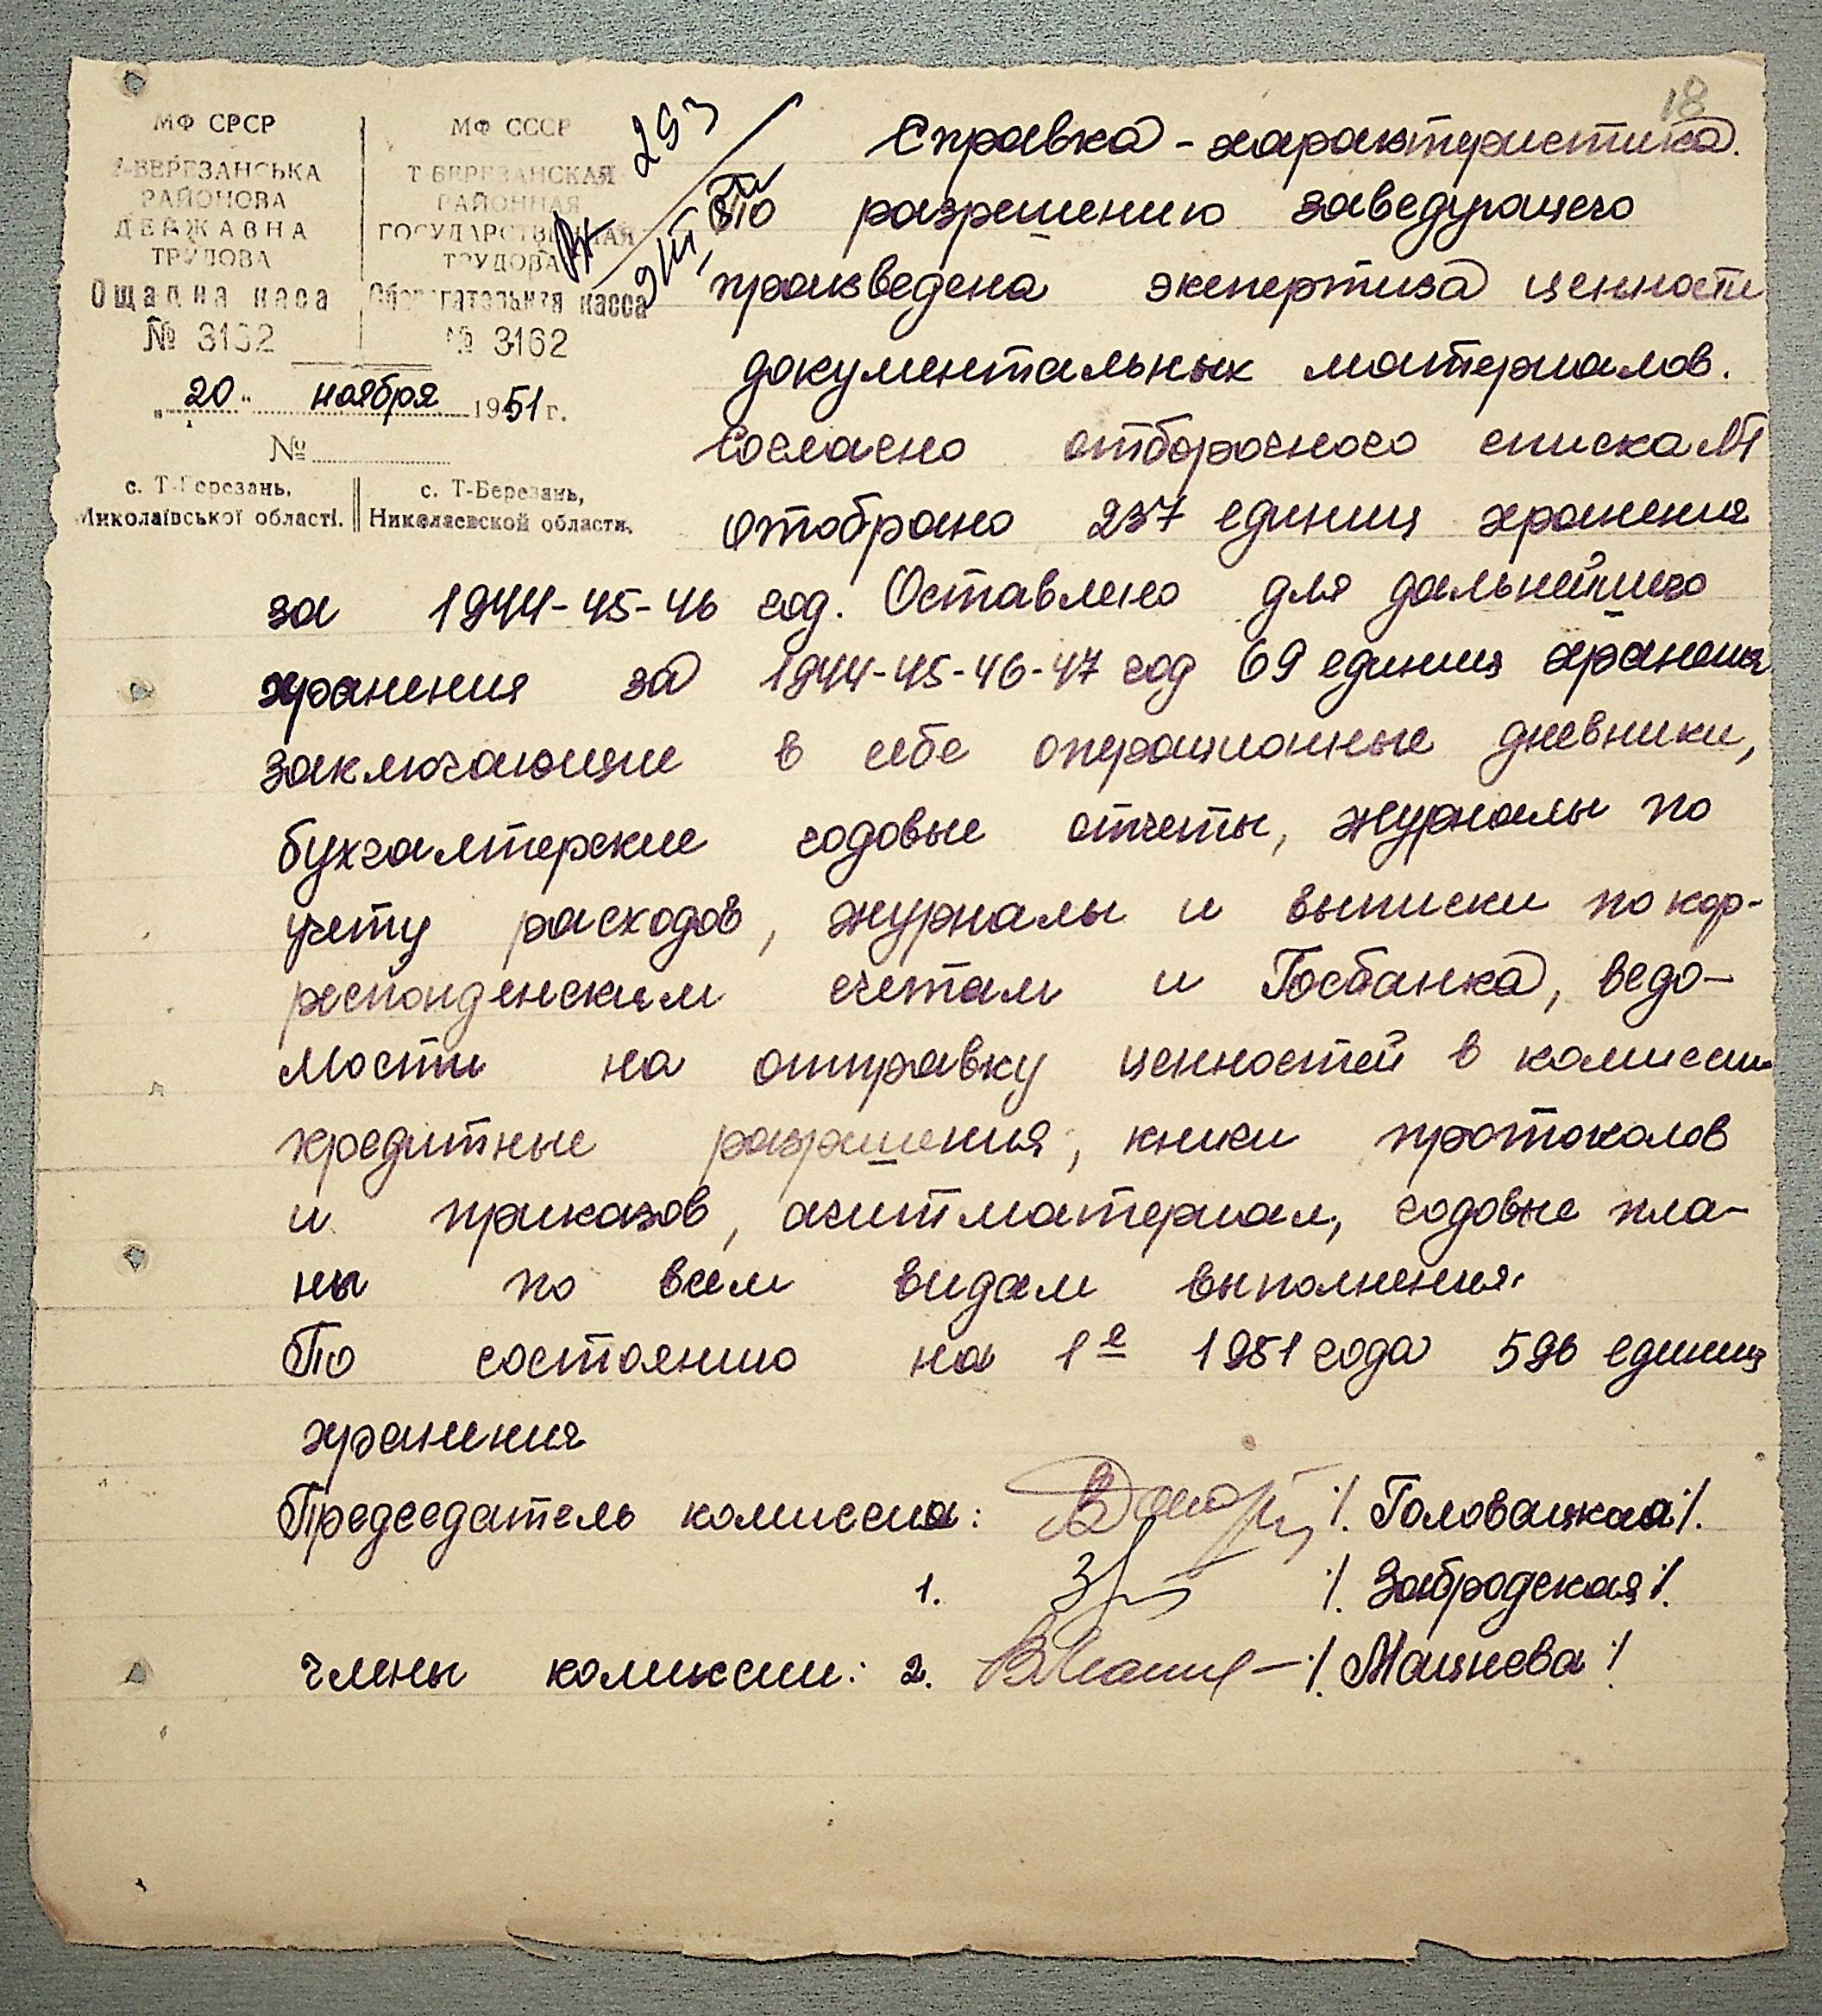 18
МФ СРСР
Т-БЕРЕЗАНСЬКА
РАЙОНОВА
ДЕРЖАВНА
ТРУДОВА
Ощадна каса
№ 3162
МФ СССР
Т-БЕРЕЗАНСКАЯ
РАЙОННАЯ
ГОСУДАРСТВЕННАЯ
ТРУДОВА
Сберегательная касса
№ 3162
"20" ноября 1951 г.
№
с. Т-Березань,
Миколаївської області.
с. Т-Березань,
Николаевской области.
Вх 293
Справка - характеристика.
По разрешению заведующего
произведена экспертиза ценности
документальных материалов.
Согласно отборочного списка №1
отобрано 237 единиц хранения
за 1944-45-46 год. Оставлено для дальнейшего
хранения за 1944-45-46-47 год 69 единиц хранения
заключающие в себе операционные дневники,
бухгалтерские годовые отчеты, журналы по
учету расходов, журналы и выписки по кор-
респонденским счетам и Госбанка, ведо-
мости на отправку ценностей в комиссии
кредитные разрешения, книги протоколов
и приказов, агитматериал, годовые пла-
ны по всем видам выполнения.
По состоянию на 1е 1951 года 596 единиц
хранения
Председатель комиссии: /. Головацкая /.
1. /. Забродская /.
члены комиссии: 2. /. Мацнева /